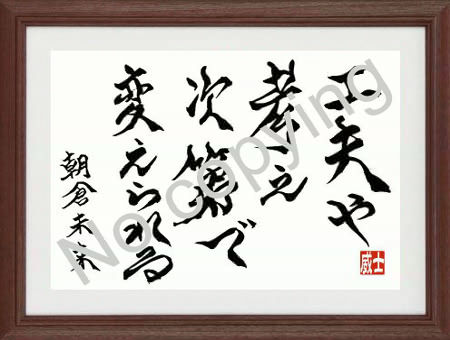 工夫や
考え
次第で
変えられる
朝倉未来
威士
No copying